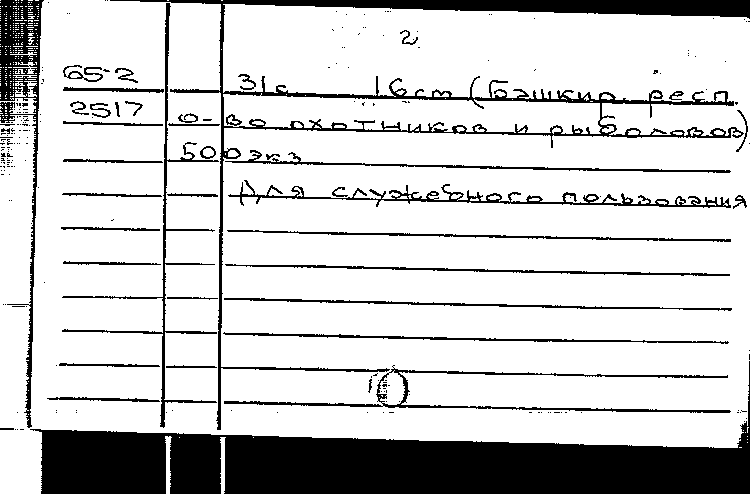 2
65-2 31с 16см (Башкир. респ.
2517 о-во охотников и рыболовов)
500экз
Для служебного пользования